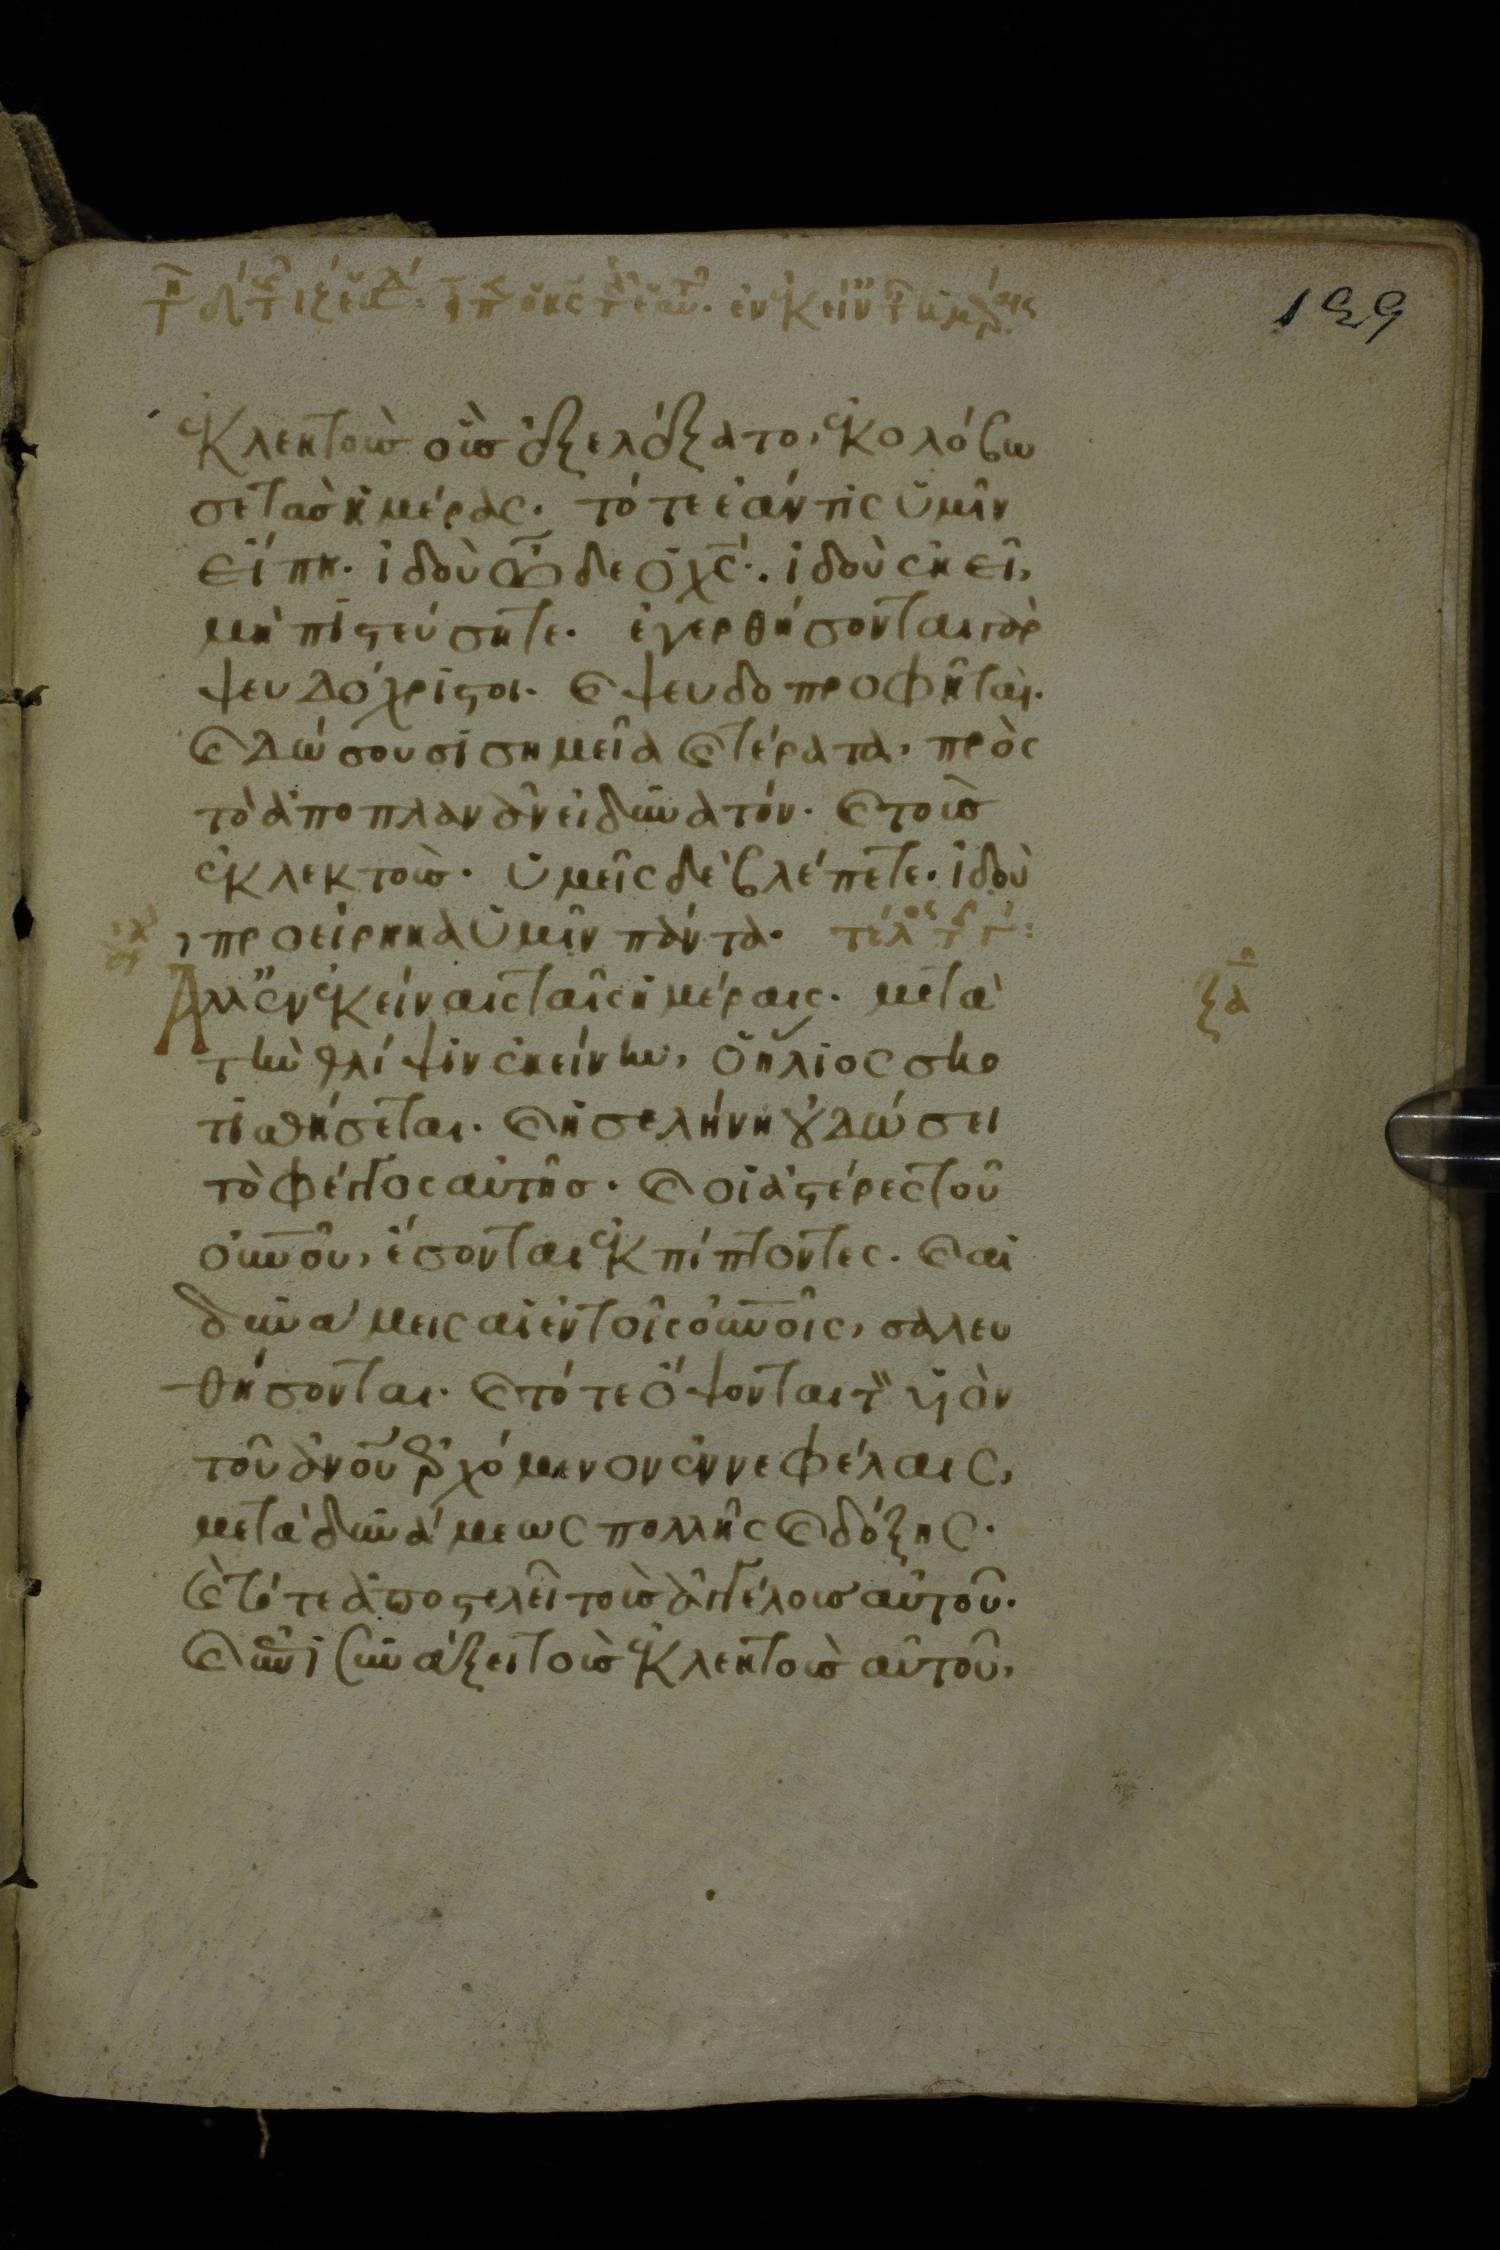 199
ἐκλεκτοὺς οὓς ἐξελέξατο, ἐκολόβω
σε τὰς ἡμέρας. τότε ἐάν τις ὑμῖν
εἴπη. ἰδοὺ ὧδε ὁ χς. ἰδοὺ ἐκεῖ,
μὴ πιστεύσητε. ἐγερθήσονται γὰρ
ψευδόχριστοι. καὶ ψευδοπροφῆται.
καὶ δώσουσι σημεῖα καὶ τέρατα, πρὸς
τὸ ἀποπλανᾶν εἰ δυνατόν. καὶ τοὺς
ἐκλεκτούς. ὑμεῖς δὲ βλέπετε. ἰδοὺ
προείρηκα ὑμῖν πάντα. τέλος
Ἀλλ' ἐν ἐκείναις ταῖς ἡμέραις. μετὰ
τὴν θλίψιν ἐκείνην, ὁ ἥλιος σκο
τισθήσεται. καὶ ἡ σελήνη οὐ δώσει
τὸ φέγγος αὐτῆς. καὶ οἱ ἀστέρες τοῦ
οὐνου, ἔσονται ἐκπίπτοντες. καὶ αἱ
δυνάμεις αἱ ἐν τοῖς οὐνοις, σαλευ
θήσονται. καὶ τότε ὄψονται τὸν υἱὸν
τοῦ ἀνου ἐρχόμενον ἐν νεφέλαις,
μετὰ δυνάμεως πολλῆς καὶ δόξης.
καὶ τότε ἀποστελεῖ τοὺς ἀγγέλους αὐτοῦ.
καὶ ἐπισυνάξει τοὺς ἐκλεκτοὺς αὐτοῦ,